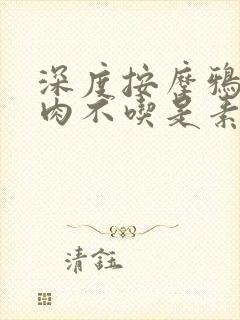 深度按摩鴉
肉不喫是素
清鈺